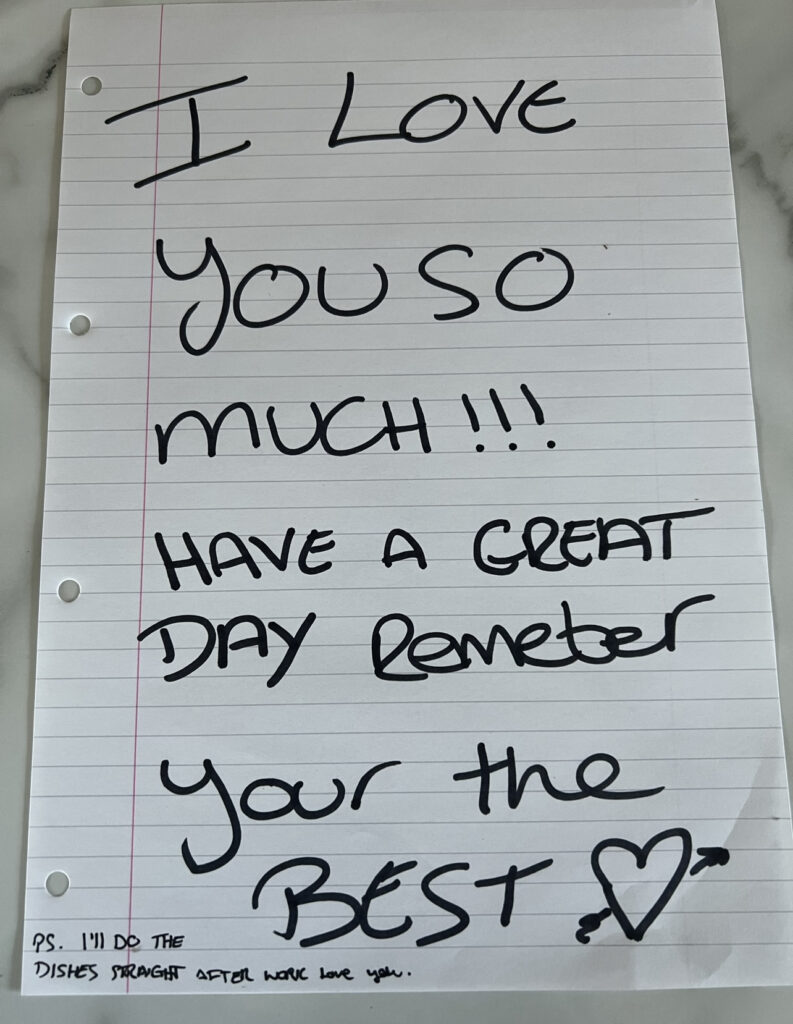 I LOVE
YOU SO
MUCH!!!
HAVE A GREAT
DAY Remeber
your the
BEST
PS. I'll DO THE
DISHES STRAIGHT AFTER WORK love you.